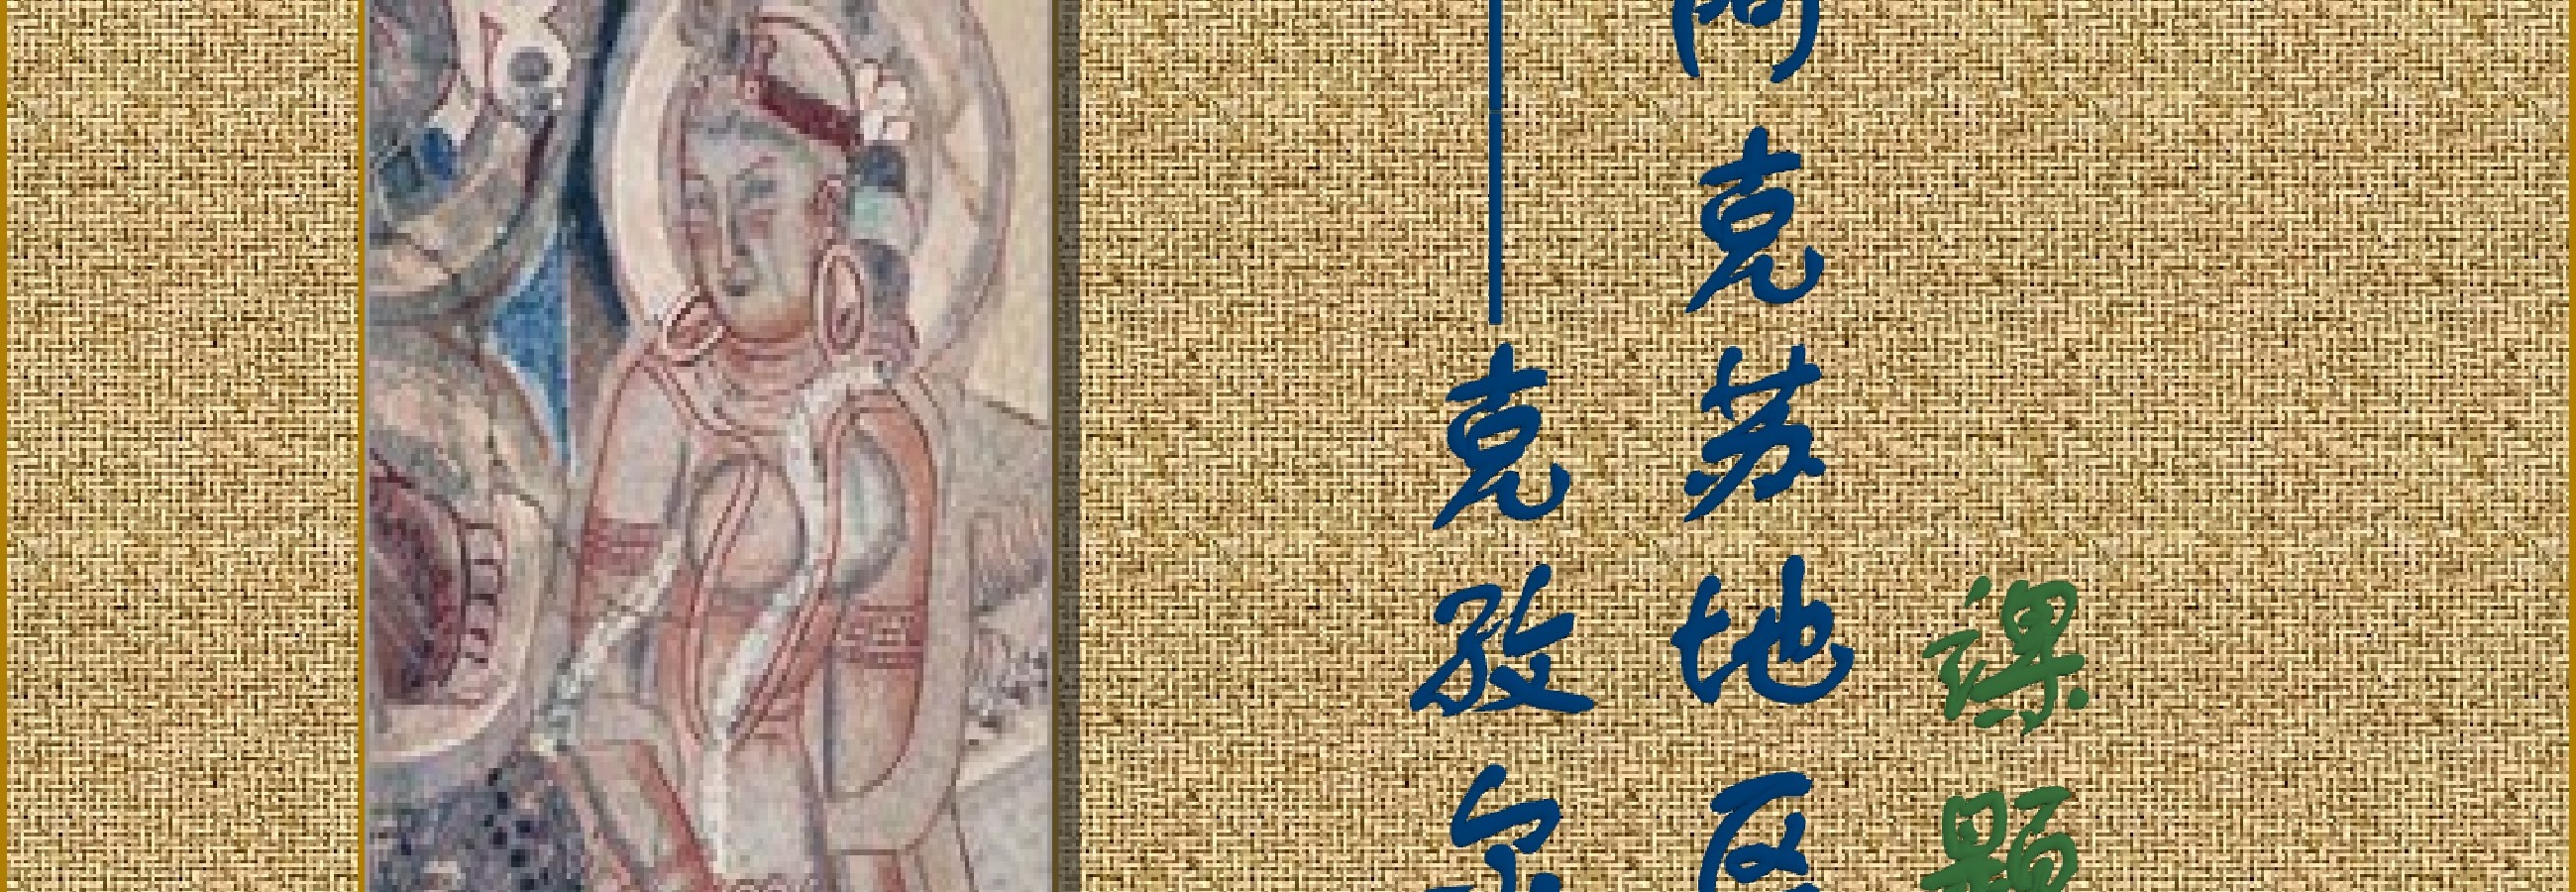 课题
克苏地区
——克孜尔